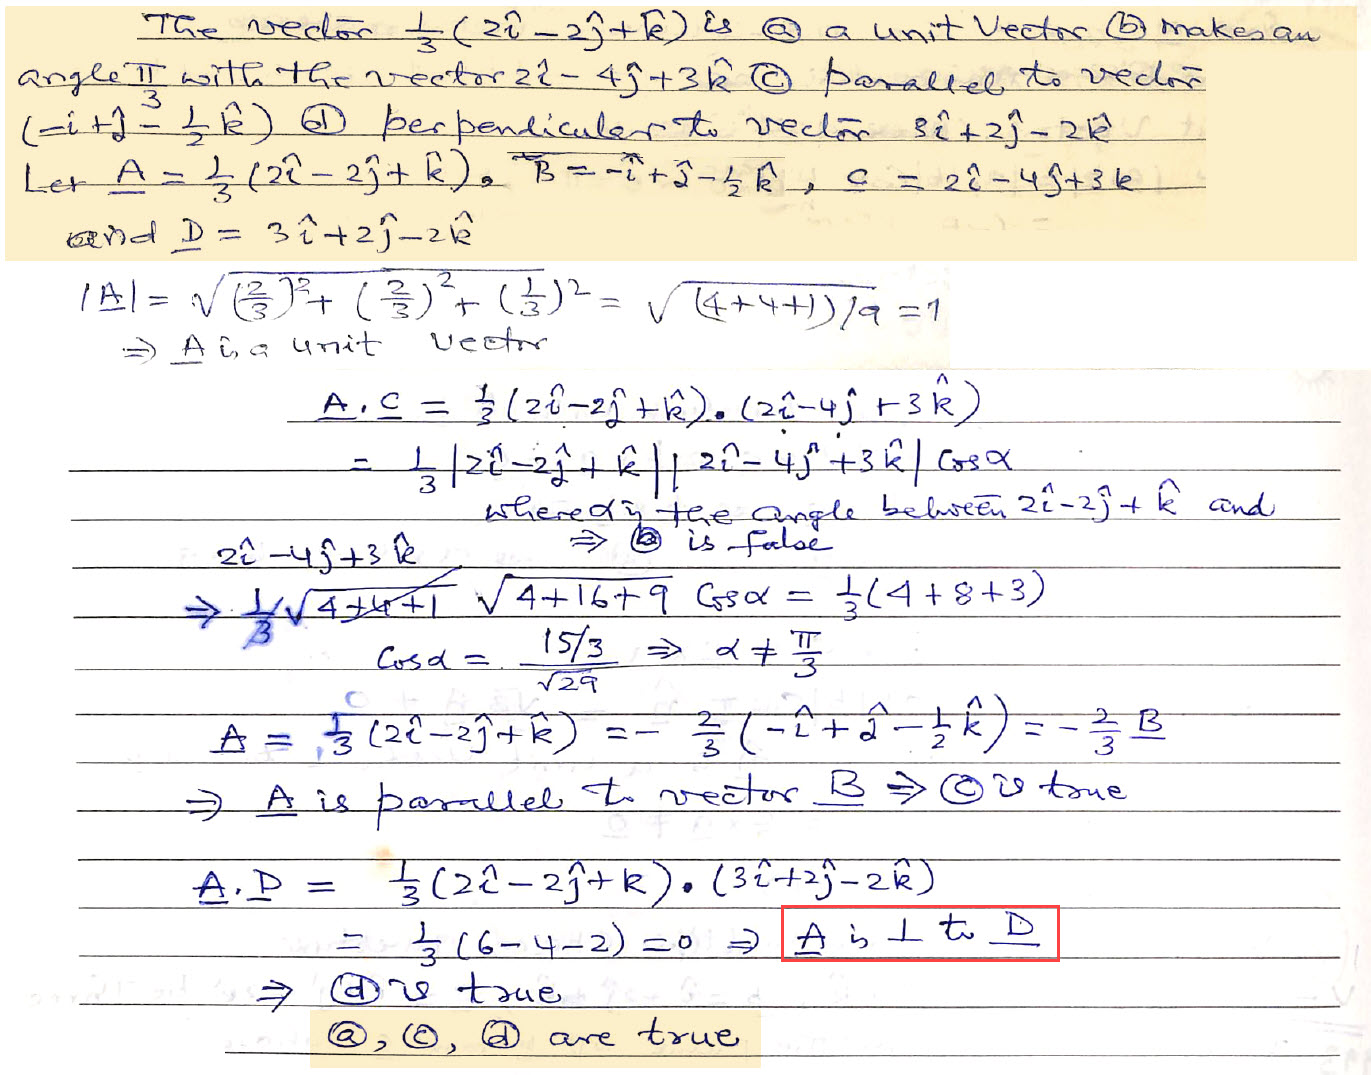 The vector 1/3 (2î − 2ĵ + k̂) is ⓐ a unit Vector ⓑ makes an
angle π/3 with the vector 2î − 4ĵ + 3k̂ ⓒ parallel to vector
(−î + ĵ − 1/2 k̂) ⓓ perpendicular to vector 3î + 2ĵ − 2k̂
Let A = 1/3 (2î − 2ĵ + k̂). B = −î + ĵ − 1/2 k̂, C = 2î − 4ĵ + 3k
and D = 3î + 2ĵ − 2k̂
|A| = √((2/3)² + (2/3)² + (1/3)²) = √((4+4+1)/9) = 1
⇒ A is a unit vector
A . C = 1/3 (2î − 2ĵ + k̂) . (2î − 4ĵ + 3k̂)
= 1/3 |2î − 2ĵ + k̂| |2î − 4ĵ + 3k̂| Cosα
where α is the angle between 2î − 2ĵ + k̂ and
2î − 4ĵ + 3k̂ ⇒ ⓑ is false
⇒ 1/3 √(4+4+1) √(4+16+9) Cosα = 1/3 (4 + 8 + 3)
Cosα = (15/3)/√29 ⇒ α ≠ π/3
A = 1/3 (2î − 2ĵ + k̂) = − 2/3 (−î + ĵ − 1/2 k̂) = − 2/3 B
⇒ A is parallel to vector B ⇒ ⓒ is true
A . D = 1/3 (2î − 2ĵ + k) . (3î + 2ĵ − 2k̂)
= 1/3 (6 − 4 − 2) = 0 ⇒ A is ⊥ to D
⇒ ⓓ is true
ⓐ, ⓒ, ⓓ are true